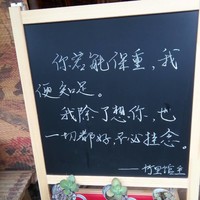 你若能保重，我
便知足。
我除了想你，也
一切都好，不必挂念。